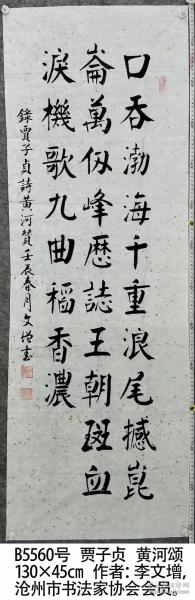 口吞渤海千重浪尾撼崑
崙萬仭峰歷誌王朝斑血
淚機歌九曲稻香濃
錄賈子貞詩黃河贊壬辰春月文增書
B5560号 贾子贞 黄河颂
130×45cm 作者:李文增,
沧州市书法家协会会员。